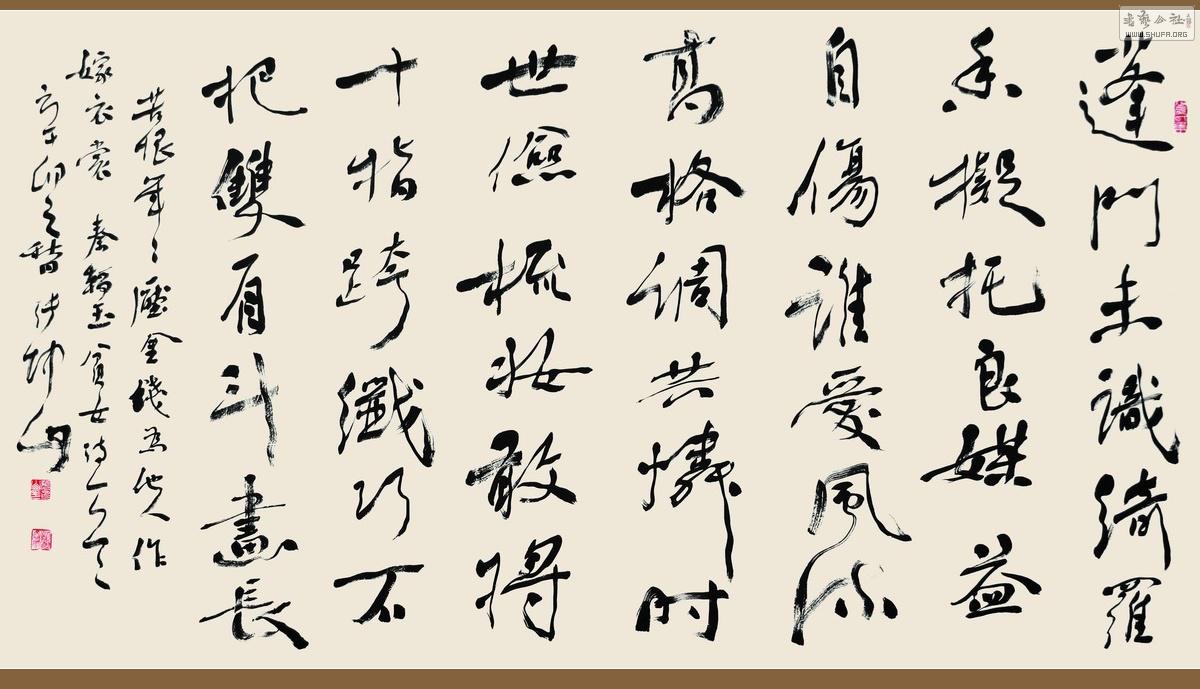 蓬門未識綺羅
香擬托良媒益
自傷誰愛風流
高格調共憐时
世儉梳妆敢將
十指跨纖巧不
把雙眉斗畫長
苦恨年〻壓金線為他人作
嫁衣裳 秦韜玉貧女詩一
辛卯之 张坤山
书艺公社
WWW.SHUFA.ORG